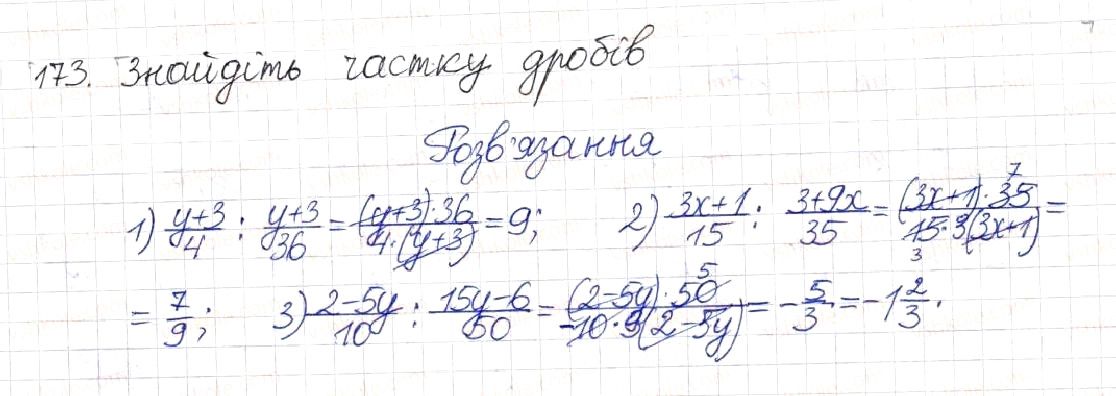 173. Знайдіть частку дробів
Розв'язання
1) (y+3)/4 : (y+3)/36 = ((y+3)·36)/(4·(y+3)) = 9; 2) (3x+1)/15 : (3+9x)/35 = ((3x+1)·35 7)/(15·3(3x+1) 3) =
= 7/9; 3) (2-5y)/10 : (15y-6)/50 = ((2-5y)·50 5)/(-10·3(2-5y)) = -5/3 = -1 2/3.